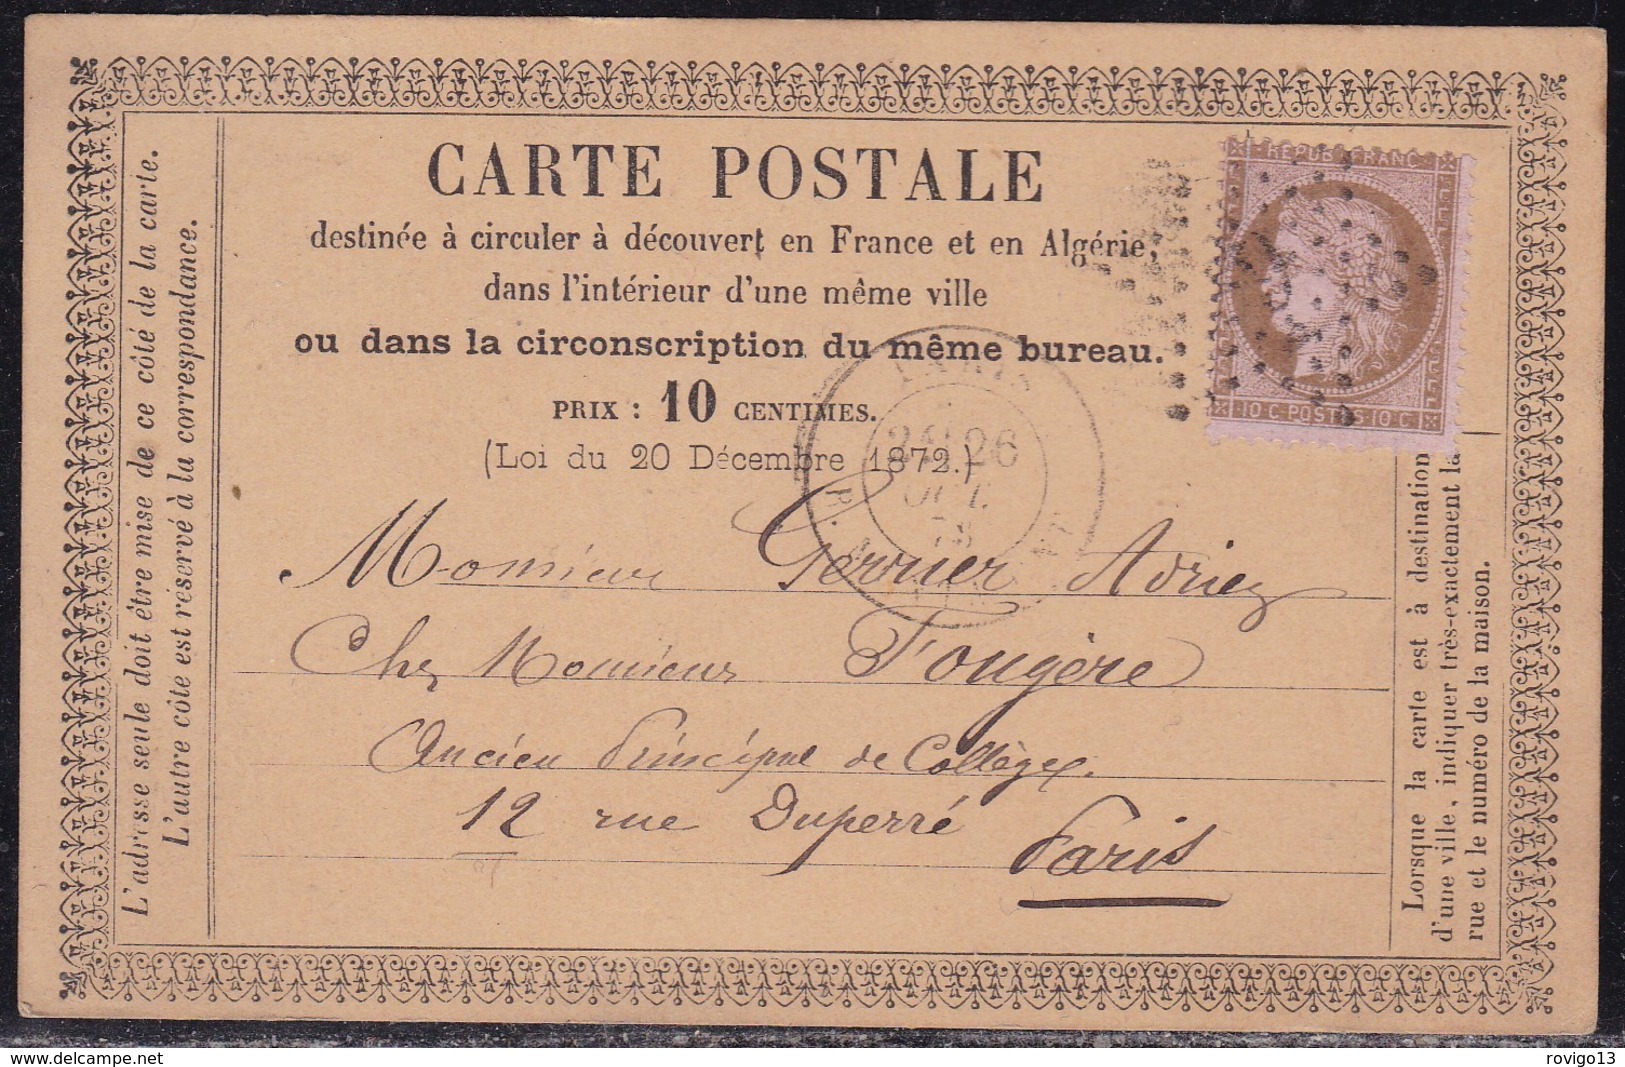 CARTE POSTALE
destinée à circuler à découvert en France et en Algérie,
dans l'intérieur d'une même ville
ou dans la circonscription du même bureau.
PRIX : 10 CENTIMES.
(Loi du 20 Décembre 1872.)
L'adresse seule doit être mise de ce côté de la carte.
L'autre côté est réservé à la correspondance.
REPUB FRANC
10 C · POSTES 10 C
PARIS
26
OCT.
Monsieur Gerrier Adrien
Chez Monsieur Fougère
Ancien Principal de Collège
12 rue Duperré
Paris
Lorsque la carte est à destination
d'une ville, indiquer très-exactement la
rue et le numéro de la maison.
delcampe.net
rovigo13